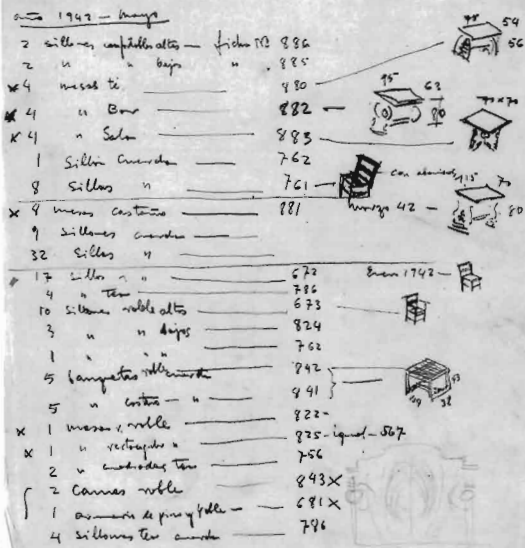 año 1942 - mayo
2 sillones altos — ficha Nº 886
2 " " bajos " 885
x 4 mesas té — 880
x 4 " Bar — 882 —
x 4 " Salon — 883
1 Sillón cuerda — 762
8 Sillas " — 761 —
x 8 mesas castaño — 881
9 Sillones cuerda —
32 Sillas " —
17 sillas " " — 672
4 " Tea — 786
10 sillones roble altos — 673
3 " " bajos — 824
1 " " " — 762
5 banquetas roble cuerda — 842
5 " castaño — " — 841
x 1 mesas roble — 822-
x 1 " rectangular " — 825 - igual - 567
2 " cuadradas tea — 756
2 Camas roble 843 x
1 armario de pino y roble — 681 x
4 Sillones tea cuerda — 786
95 54
56
95 62
80
70 x 70
115 70
marzo 42 — 80
Enero 1942 —